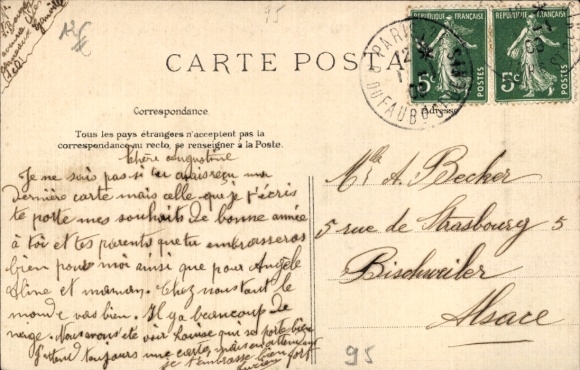 CARTE POSTALE
Correspondance
Tous les pays étrangers n'acceptent pas la
correspondance au recto, se renseigner à la Poste.
Adresse
RÉPUBLIQUE FRANÇAISE
5c
POSTES
RÉPUBLIQUE FRANÇAISE
5c
POSTES
PARIS
DU FAUBG
Chère Augustine
Je ne sais pas si tu as reçu ma
dernière carte mais celle que je t'écris
te porte mes souhaits de bonne année
à toi et tes parents que tu embrasseras
bien pour moi ainsi que pour Angèle
Aline et maman. Chez nous tout le
monde vas bien. Il y a beaucoup de
neige. Nous avons été voir Louise qui se porte bien
J'attend toujours une carte, mais en attendant
je t'embrasse bien fort
Mlle A. Becher
5 rue de Strasbourg 5
Bischweiler
Alsace
95
95